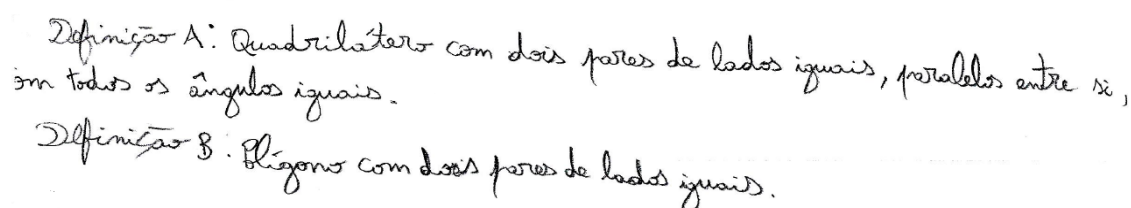 Definição A: Quadrilátero com dois pares de lados iguais, paralelos entre si,
om todos os ângulos iguais.
Definição B: Plígono com dois pares de lados iguais.